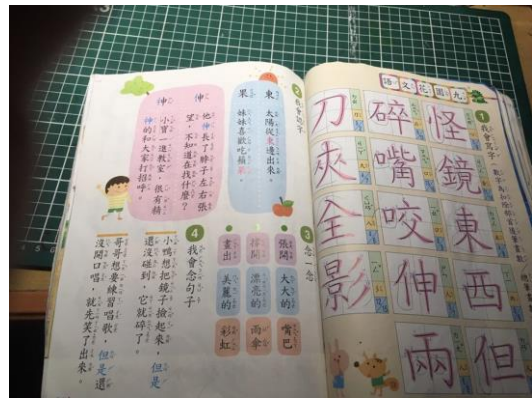 語文花園九
1 我會寫字
怪鏡東西但
碎嘴咬伸兩
刀夾全影
2 我會認字
東 太陽從東邊出來。
果 妹妹喜歡吃蘋果。
伸 他伸長了脖子左右張
望,不知道在找什麼?
神 小寶一進教室,很有精
神的和大家打招呼。
3 念一念
張開 大大的 嘴巴
撐開 漂亮的 雨傘
畫出 美麗的 彩虹
4 我會念句子
小鴨想把鏡子撿起來,但是
還沒碰到,它就碎了。
哥哥想要練習唱歌,但是還
沒開口唱,就先笑了出來。